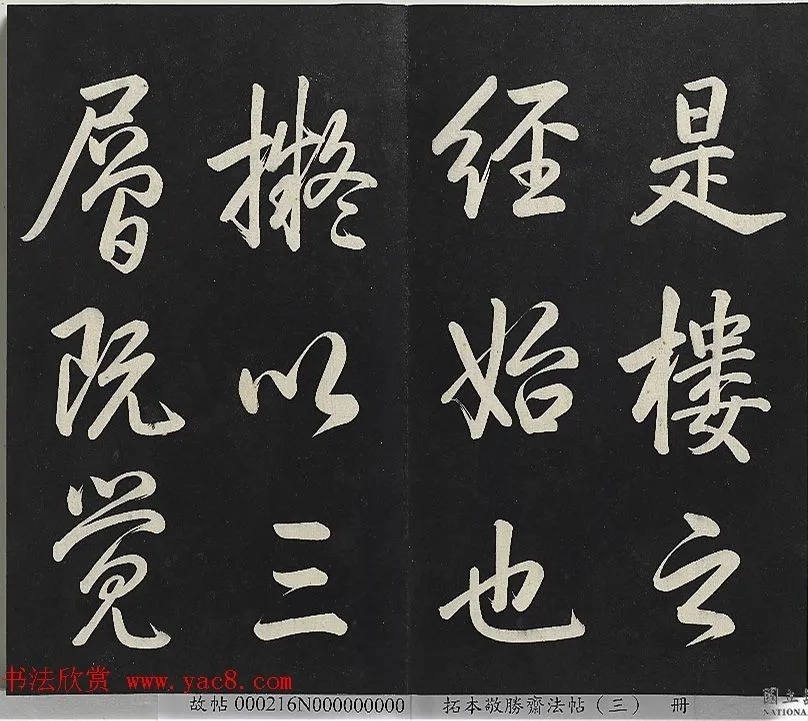 是樓之
經始也
擬以三
層既覺
书法欣赏 www.yac8.com
故帖 000216N000000000 拓本敬勝齋法帖（三） 册
國立
NATIONA